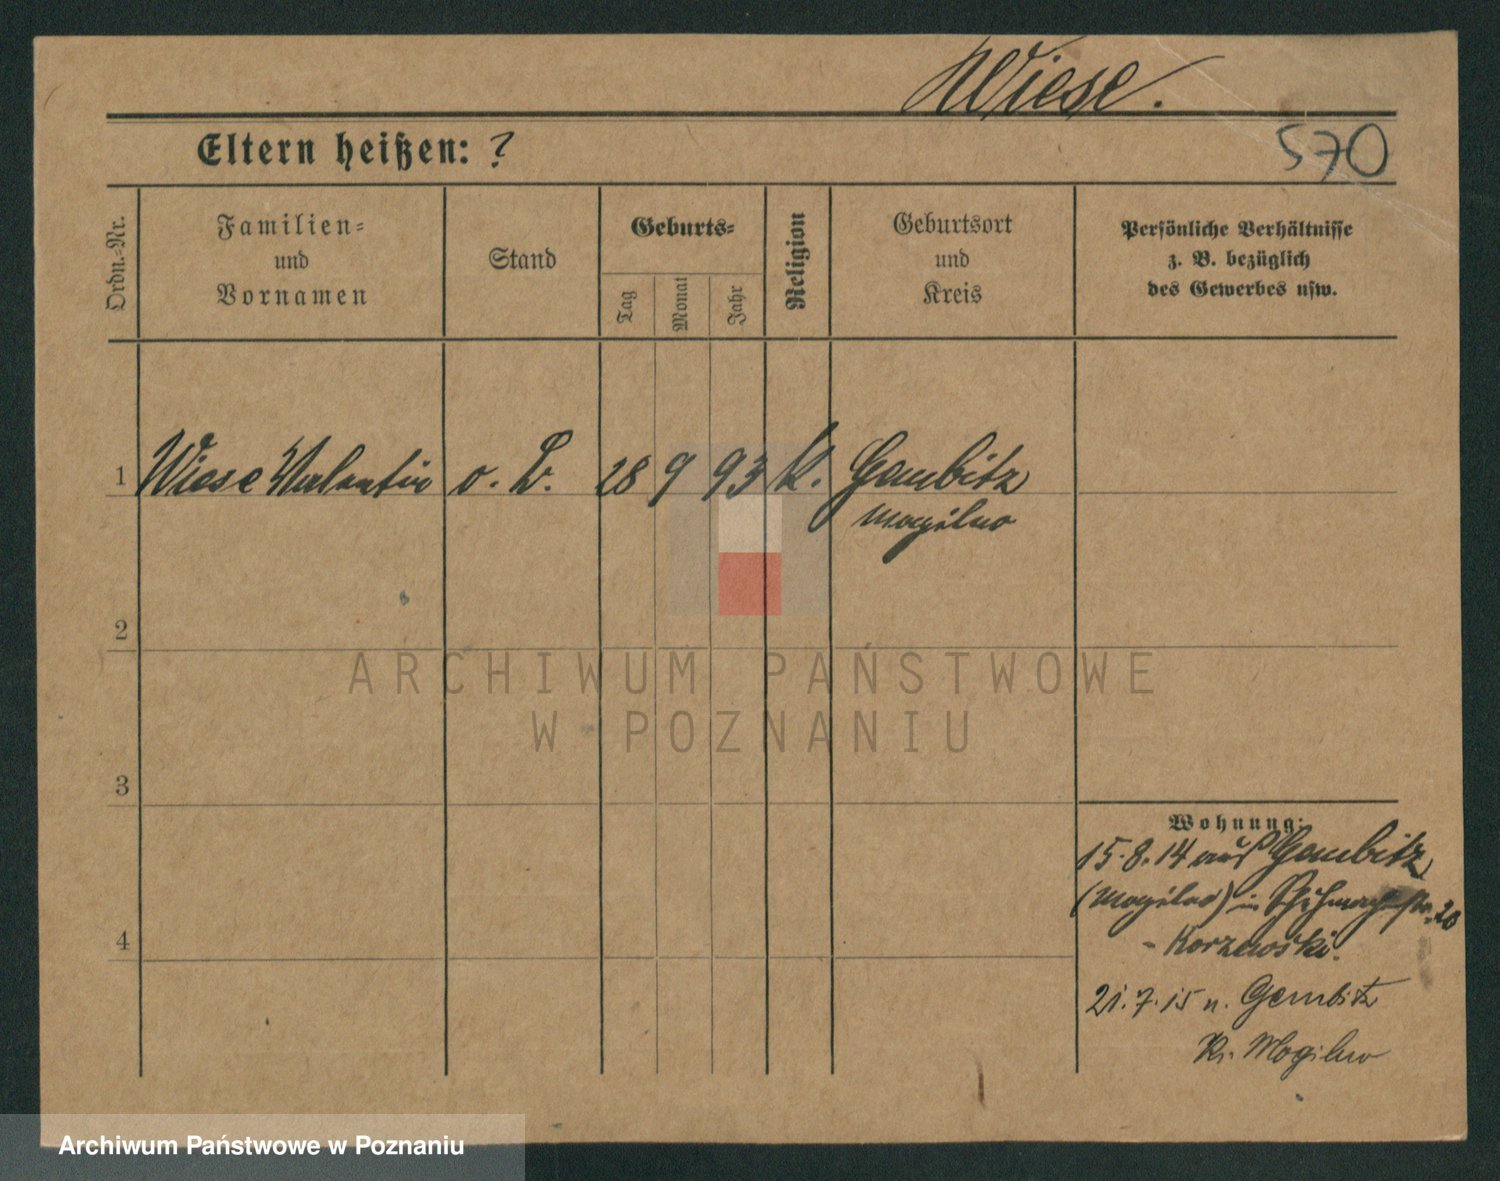 Wiese.
570
Eltern heißen: ?
Ordn.-Nr.
Familien-
und
Vornamen
Stand
Geburts-
Tag
Monat
Jahr
Religion
Geburtsort
und
Kreis
Persönliche Verhältnisse
z. B. bezüglich
des Gewerbes usw.
1 Wiese Valentin o. B. 28 9 93 K. Gembitz
Mogilno
2
3
4
ARCHIWUM PAŃSTWOWE
W POZNANIU
Wohnung:
15.8.14 aus Gembitz
(Mogilno) in 20
- Korzewski.
21.7.15 n. Gembitz
Kr. Mogilno
Archiwum Państwowe w Poznaniu